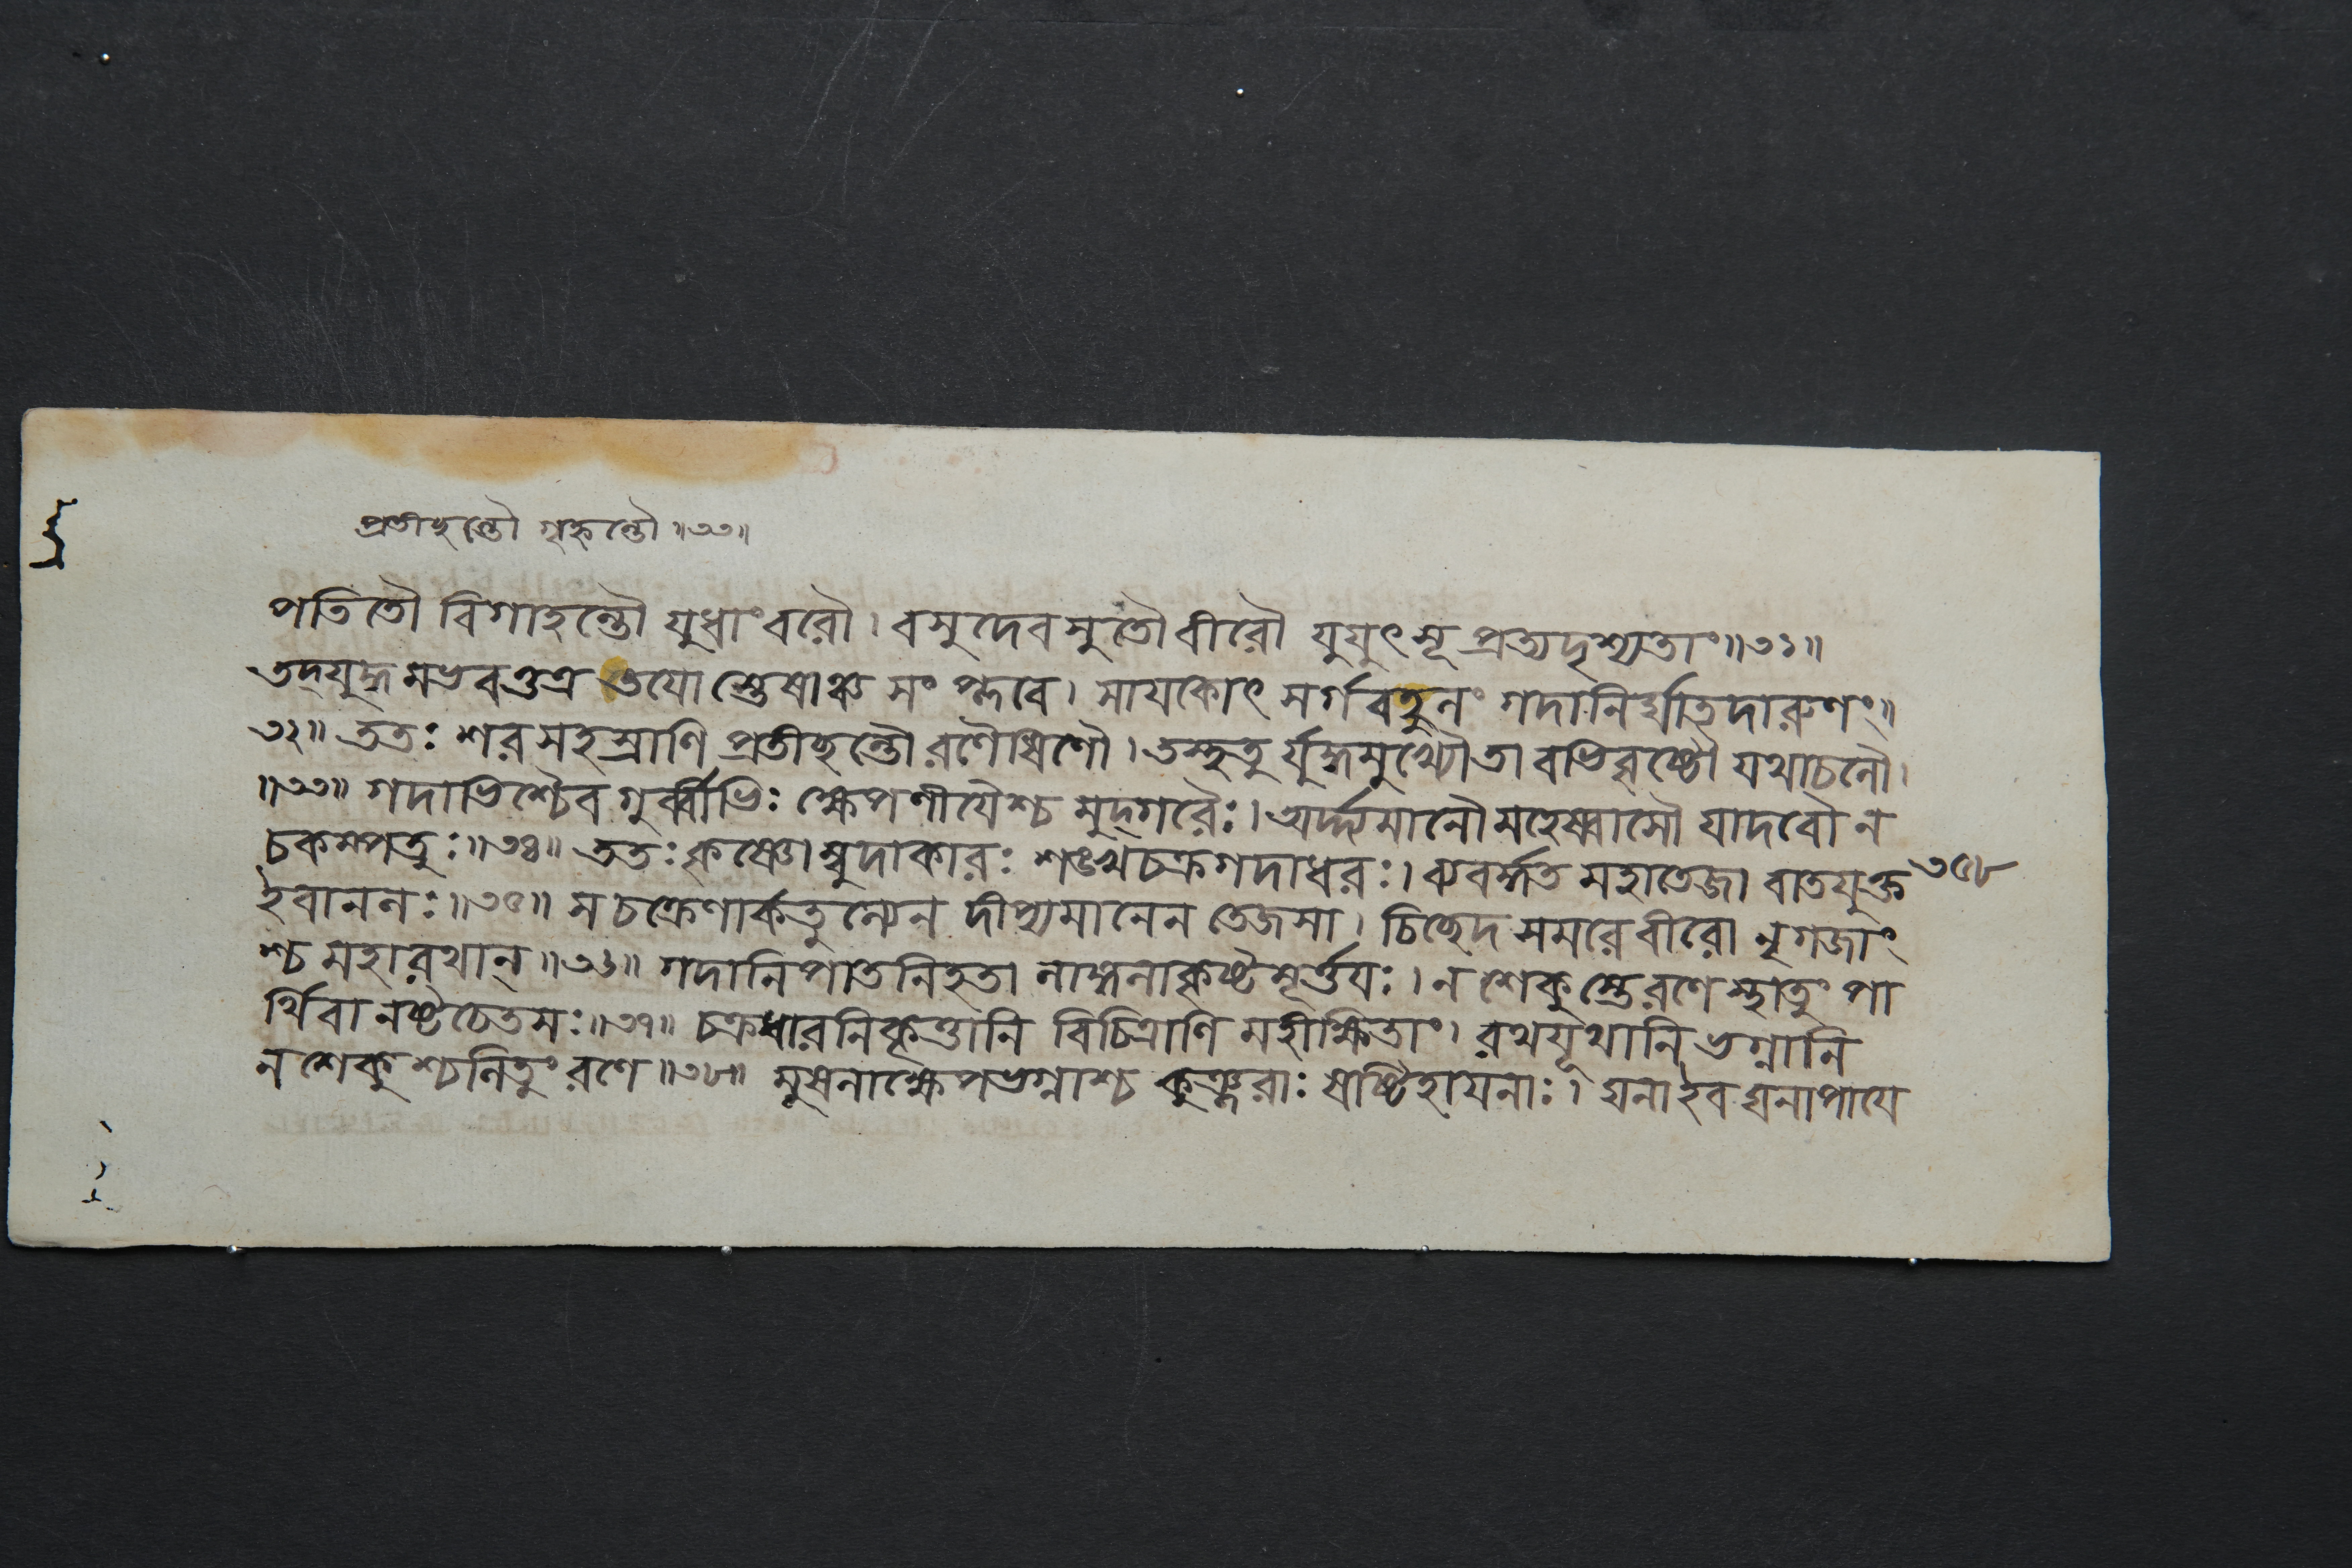 প্রতীহন্তৌ গৃহ্নন্তৌ ॥৩৩॥
পতিতৌ বিগাহন্তৌ যুধাংবরৌ। বসুদেবসুতৌ বীরৌ যুযুৎসূ প্রত্যদৃশ্যতাং॥৩১॥
তদ্যুদ্ধমভবত্তত্র তযোস্তেষাঞ্চ সংপ্লবে। সাযকোৎসর্গবহুলং গদানির্ঘাতদারুণং॥
৩২॥ ততঃ শরসহস্রাণি প্রতীহন্তৌ রণৈষিণৌ। তস্থতুর্যুদ্ধমুখ্যৌতাবভিবৃষ্টৌ যথাচলৌ।
॥৩৩॥ গদাভিশ্চৈব গুর্ব্বীভিঃ ক্ষেপণীযৈশ্চ মুদ্গরৈঃ। অর্দ্দ্যমানৌ মহেষ্বাসৌ যাদবৌ ন
চকম্পতুঃ॥৩৪॥ ততঃ কৃষ্ণোম্বুদাকারঃ শঙ্খচক্রগদাধরঃ। ব্যবর্দ্ধত মহাতেজা বাতযুক্ত ৩৫৮
ইবানলঃ॥৩৫॥ স চক্রেণার্কতুল্যেন দীপ্যমানেন তেজসা। চিচ্ছেদ সমরে বীরো নৃগজাং
শ্চ মহারথান্॥৩৬॥ গদানিপাতনিহতা লাঙ্গলাকৃষ্টমূর্ত্তযঃ। ন শেকুস্তে রণে স্থাতুং পা
র্থিবা নষ্টচেতসঃ॥৩৭॥ চক্রধারনিকৃত্তানি বিচিত্রাণি মহীক্ষিতাং। রথযূথানি ভগ্নানি
ন শেকুশ্চলিতুং রণে॥৩৮॥ মূষলাক্ষেপভগ্নাশ্চ কুঞ্জরাঃ ষাষ্টিহাযনাঃ। ঘনা ইব ঘনাপাযে